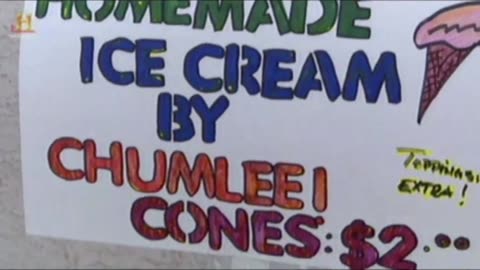 HOMEMADE
ICE CREAM
BY
CHUMLEE!
TOPPINGS
EXTRA!
CONES: $2.00
H